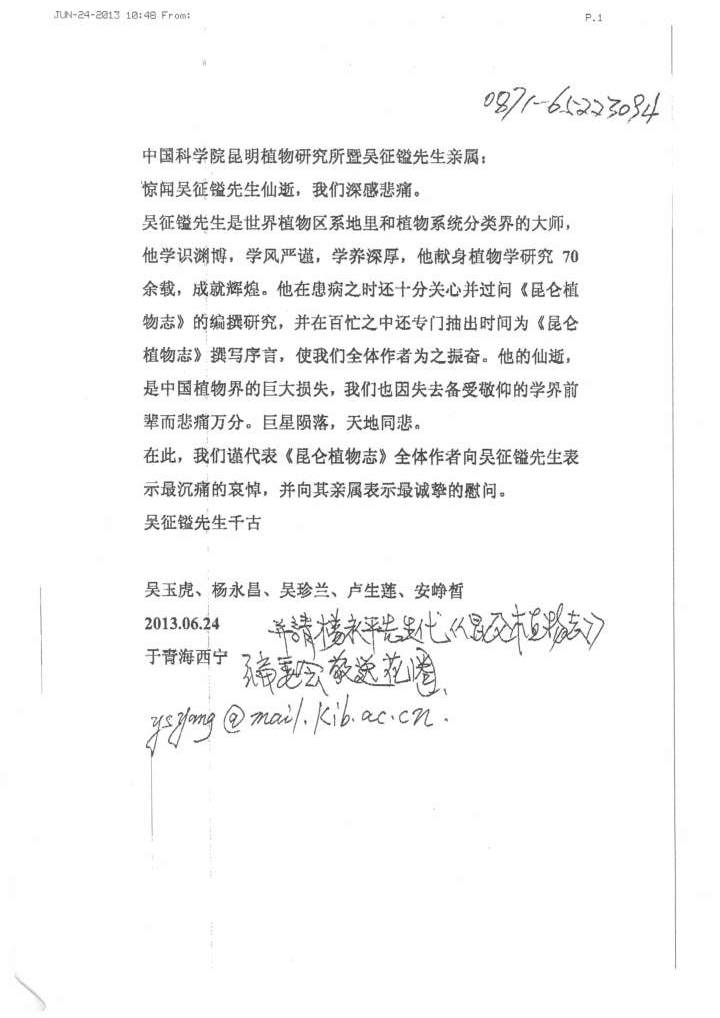 JUN-24-2013 10:48 From:
P.1
0871-65223094
中国科学院昆明植物研究所暨吴征镒先生亲属：
惊闻吴征镒先生仙逝，我们深感悲痛。
吴征镒先生是世界植物区系地里和植物系统分类界的大师，
他学识渊博，学风严谨，学养深厚，他献身植物学研究 70
余载，成就辉煌。他在患病之时还十分关心并过问《昆仑植
物志》的编撰研究，并在百忙之中还专门抽出时间为《昆仑
植物志》撰写序言，使我们全体作者为之振奋。他的仙逝，
是中国植物界的巨大损失，我们也因失去备受敬仰的学界前
辈而悲痛万分。巨星陨落，天地同悲。
在此，我们谨代表《昆仑植物志》全体作者向吴征镒先生表
示最沉痛的哀悼，并向其亲属表示最诚挚的慰问。
吴征镒先生千古
吴玉虎、杨永昌、吴珍兰、卢生莲、安峥皙
2013.06.24
并請楊永平先生代《昆仑植物志》
于青海西宁
编委会敬送花圈
ysyang@mail.kib.ac.cn.